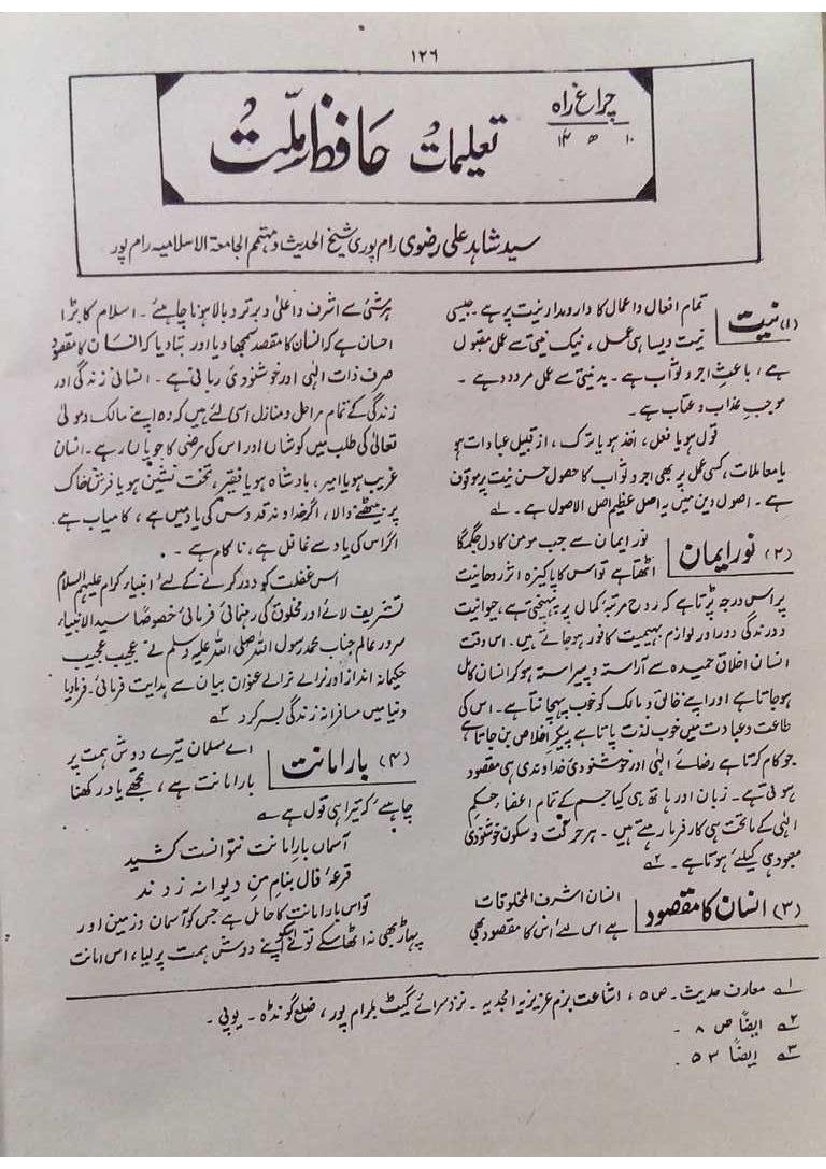 ۱۲۶
چراغ راہ
۱۰ ۱۲ھ
تعلیمات حافظ ملت
سید شاہد علی رضوی رام پوری شیخ الحدیث و مہتمم الجامعۃ الاسلامیہ رام پور
(۱) نیت
تمام افعال و اعمال کا دارومدار نیت پر ہے جیسی
نیت ویسا ہی عمل، نیک نیتی سے عمل مقبول
ہے، باعثِ اجر و ثواب ہے۔ بدنیتی سے عمل مردود ہے۔
موجب عذاب و عتاب ہے۔
قول ہو یا فعل، اخذ ہو یا ترک، از قبیل عبادات ہو
یا معاملات، کسی عمل پر بھی اجر و ثواب کا حصول حسن نیت پر موقوف
ہے۔ اصول دین میں یہ اصل عظیم اصل الاصول ہے۔ ۱؎
(۲) نور ایمان
نور ایمان سے جب مومن کا دل جگمگا
اٹھتا ہے تو اس کا پاکیزہ اثر روحانیت
پر اس درجہ پڑتا ہے کہ روح مرتبۂ کمال پر پہنچتی ہے، حیوانیت
و درندگی دور اور لوازم بہیمیت کافور ہو جاتے ہیں۔ اس وقت
انسان اخلاق حمیدہ سے آراستہ و پیراستہ ہو کر انسان کامل
ہو جاتا ہے اور اپنے خالق و مالک کو خوب پہچانتا ہے۔ اس کی
طاعت و عبادت میں خوب لذت پاتا ہے پیکر اخلاص بن جاتا ہے
جو کام کرتا ہے رضائے الٰہی اور خوشنودیٔ خداوندی ہی مقصود
ہوتی ہے۔ زبان اور ہاتھ ہی کیا جسم کے تمام اعضاء حکم
الٰہی کے ماتحت ہی کار فرما رہتے ہیں۔ ہر حرکت و سکون خوشنودیٔ
معبود ہی کیلئے ہوتا ہے۔ ۲؎
(۳) انسان کا مقصود
انسان اشرف المخلوقات
ہے اس لئے اس کا مقصود بھی
ہر شئی سے اشرف و اعلیٰ و برتر و بالا ہونا چاہئے۔ اسلام کا بڑا
احسان ہے کہ انسان کا مقصد سمجھا دیا اور بتا دیا کہ انسان کا مقصود
صرف ذات الٰہی اور خوشنودیٔ ربانی ہے۔ انسانی زندگی اور
زندگی کے تمام مراحل و منازل اسی لئے ہیں کہ وہ اپنے مالک و مولیٰ
تعالیٰ کی طلب میں کوشاں اور اس کی مرضی کا جویاں رہے۔ انسان
غریب ہو یا امیر، بادشاہ ہو یا فقیر، تخت نشین ہو یا فرش خاک
پر بیٹھنے والا، اگر خداوند قدوس کی یاد میں ہے، کامیاب ہے۔
اگر اس کی یاد سے غافل ہے، ناکام ہے۔
اس غفلت کو دور کرنے کے لئے انبیاء کرام علیہم السلام
تشریف لائے اور مخلوق کی رہنمائی فرمائی خصوصًا سید الانبیاء
سرور عالم جناب محمد رسول اللہ صلی اللہ علیہ وسلم نے عجیب عجیب
حکیمانہ انداز اور نرالے نرالے عنوان بیان سے ہدایت فرمائی۔ فرمادیا
دنیا میں مسافرانہ زندگی بسر کرو ۳؎
(۴) بار امانت
اے مسلمان تیرے دوش ہمت پر
بار امانت ہے، تجھے یاد رکھنا
چاہیے کہ تیرا ہی قول ہے ؎
آسماں بارِ امانت نتوانست کشید
قرعۂ فال بنام من دیوانہ زدند
تو اس بار امانت کا حامل ہے جس کو آسمان و زمین اور
پہاڑ بھی نہ اٹھا سکے تو نے اپنے دوش ہمت پر لیا، اس امانت
۱؎ معارف حدیث۔ ص ۵، اشاعت بزم عزیزیہ امجدیہ۔ نزد سرائے گیٹ بلرام پور، ضلع گونڈہ۔ یوپی۔
۲؎ ایضًا ص ۸ ۔
۳؎ ایضًا ۵۳ ۔